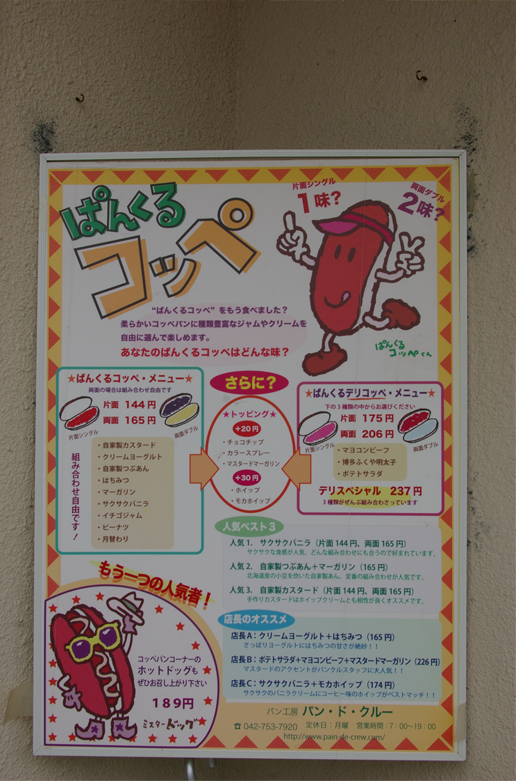 ぱんくる
コッペ
片面シングル
1味?
両面ダブル
2味?
"ぱんくるコッペ"をもう食べました?
柔らかいコッペパンに種類豊富なジャムやクリームを
自由に選んで楽しめます。
あなたのぱんくるコッペはどんな味?
ぱんくる
コッペくん
★ぱんくるコッペ・メニュー★
両面の場合は組み合わせ自由です
片面 144円
両面 165円
片面シングル
両面ダブル
組み合わせ自由です!
・自家製カスタード
・クリームヨーグルト
・自家製つぶあん
・はちみつ
・マーガリン
・サクサクバニラ
・イチゴジャム
・ピーナツ
・月替わり
さらに?
★トッピング★
+20円
・チョコチップ
・カラースプレー
・マスタードマーガリン
+30円
・ホイップ
・モカホイップ
★ぱんくるデリコッペ・メニュー★
下の3種類の中からお選びください
片面 175円
両面 206円
片面シングル
両面ダブル
・マヨコンビーフ
・博多ふくや明太子
・ポテトサラダ
デリスペシャル 237円
3種類がぜんぶ組み合わさっています
人気ベスト3
人気1. サクサクバニラ(片面144円、両面165円)
サクサクな食感が人気。どんな組み合わせにも合うので好まれています。
人気2. 自家製つぶあん+マーガリン(165円)
北海道産の小豆を炊いた自家製あん。定番の組み合わせが人気です。
人気3. 自家製カスタード(片面144円、両面165円)
手作りカスタードはホイップクリームとも相性が良くオススメです。
店長のオススメ
店長A:クリームヨーグルト+はちみつ(165円)
さっぱりヨーグルトにはちみつの甘さが絶妙!!
店長B:ポテトサラダ+マヨコンビーフ+マスタードマーガリン(226円)
マスタードのアクセントがパンクルスタッフに大人気!!
店長C:サクサクバニラ+モカホイップ(174円)
サクサクのバニラクリームにコーヒー味のホイップがベストマッチ!!
もう一つの人気者!
コッペパンコーナーの
ホットドッグも
ぜひお召し上がり下さい
189円
ミスタードッグ
パン工房 パン・ド・クルー
☎042-753-7920 定休日:月曜 営業時間:7:00〜19:00
http://www.pain-de-crew.com/